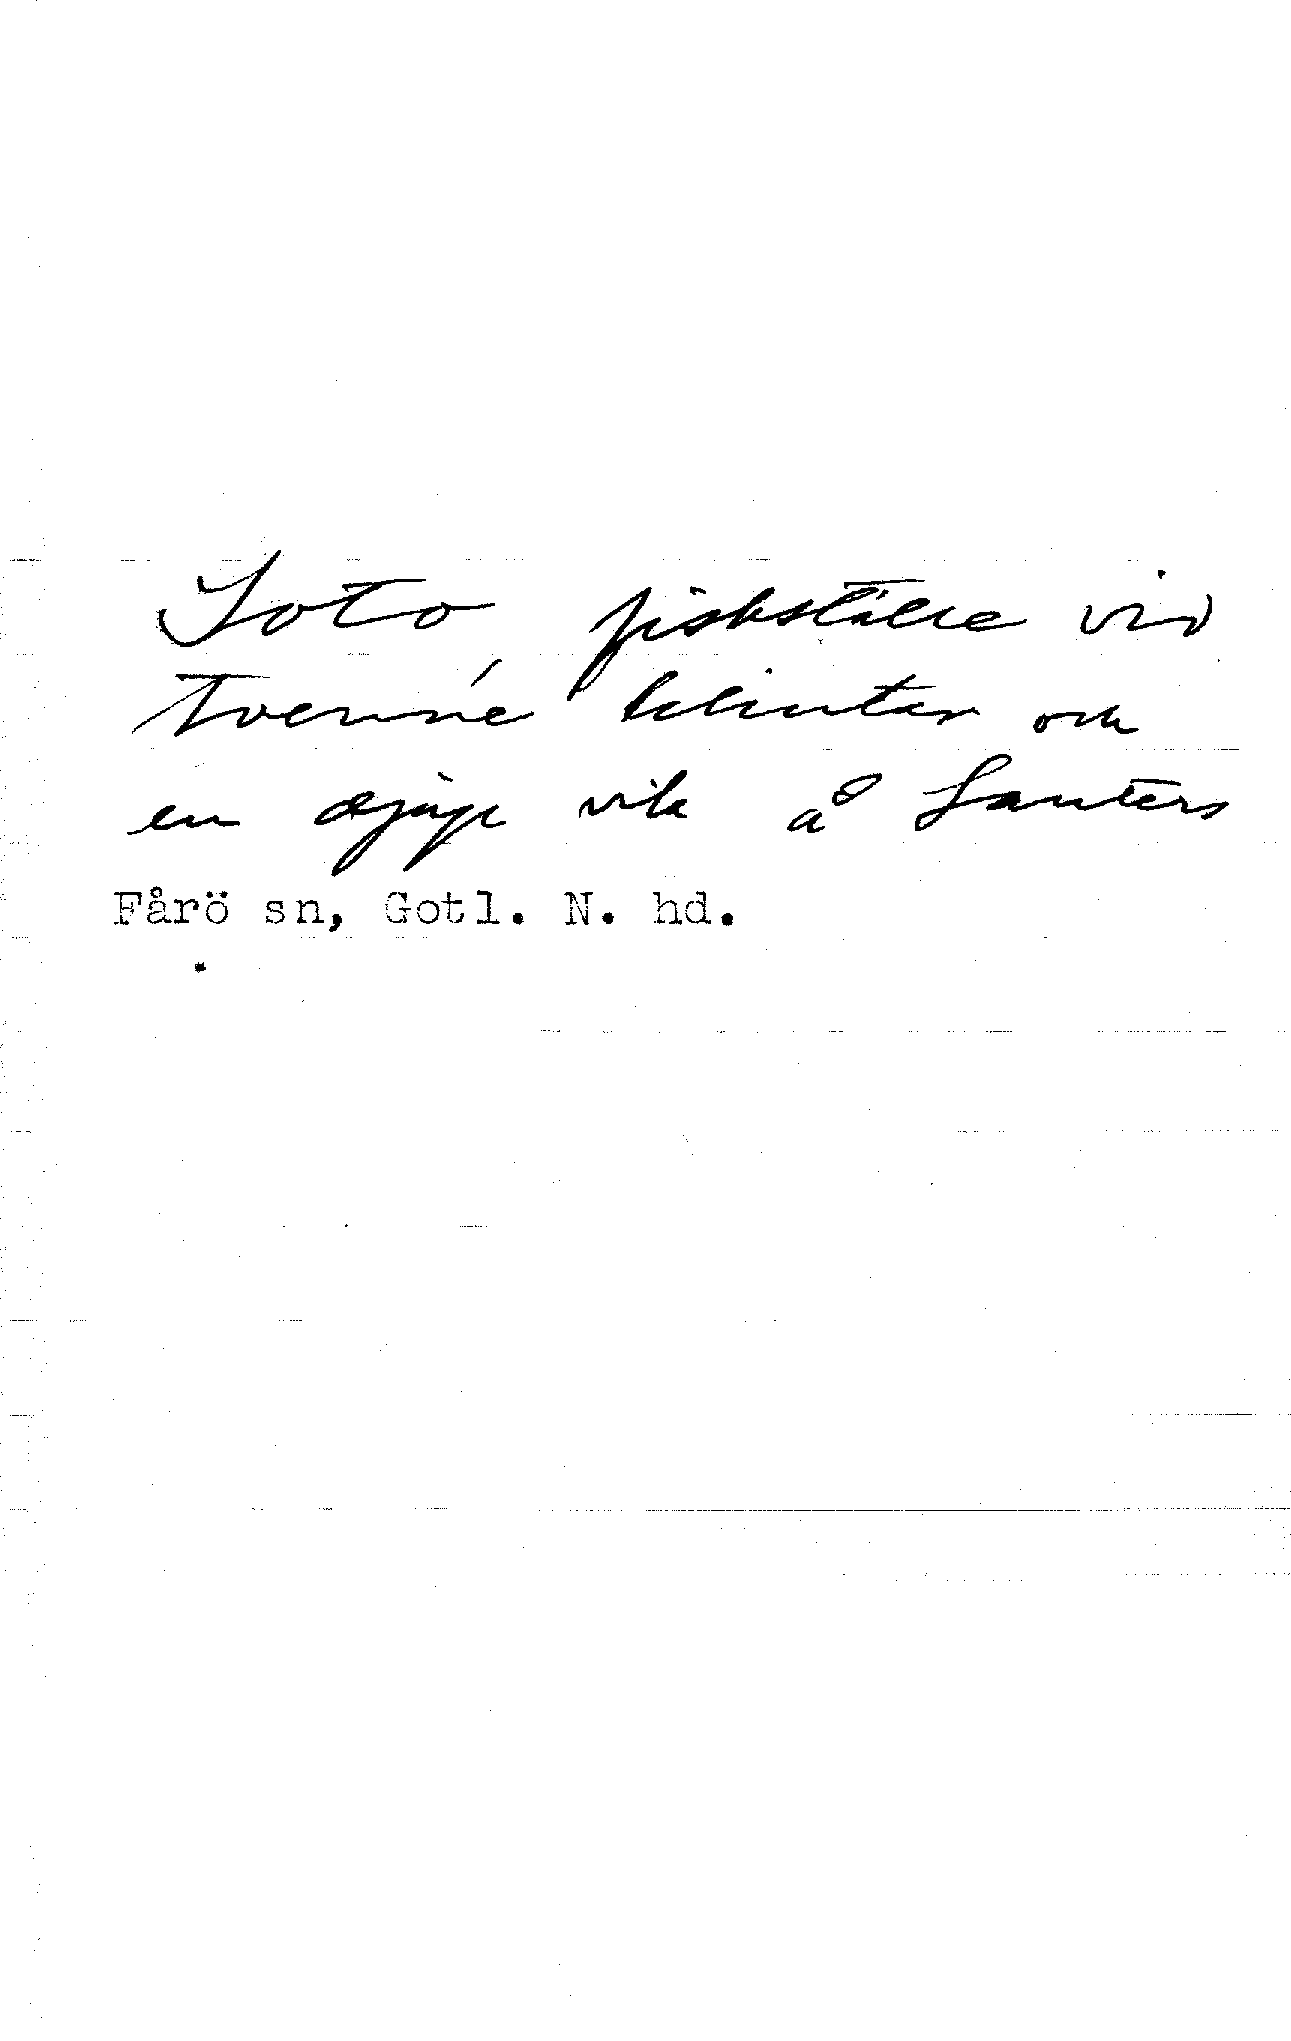 Soto fiskställe vid
tvenne klintar och
en djup vik å Lauters
Fårö sn, Gotl. N. hd.